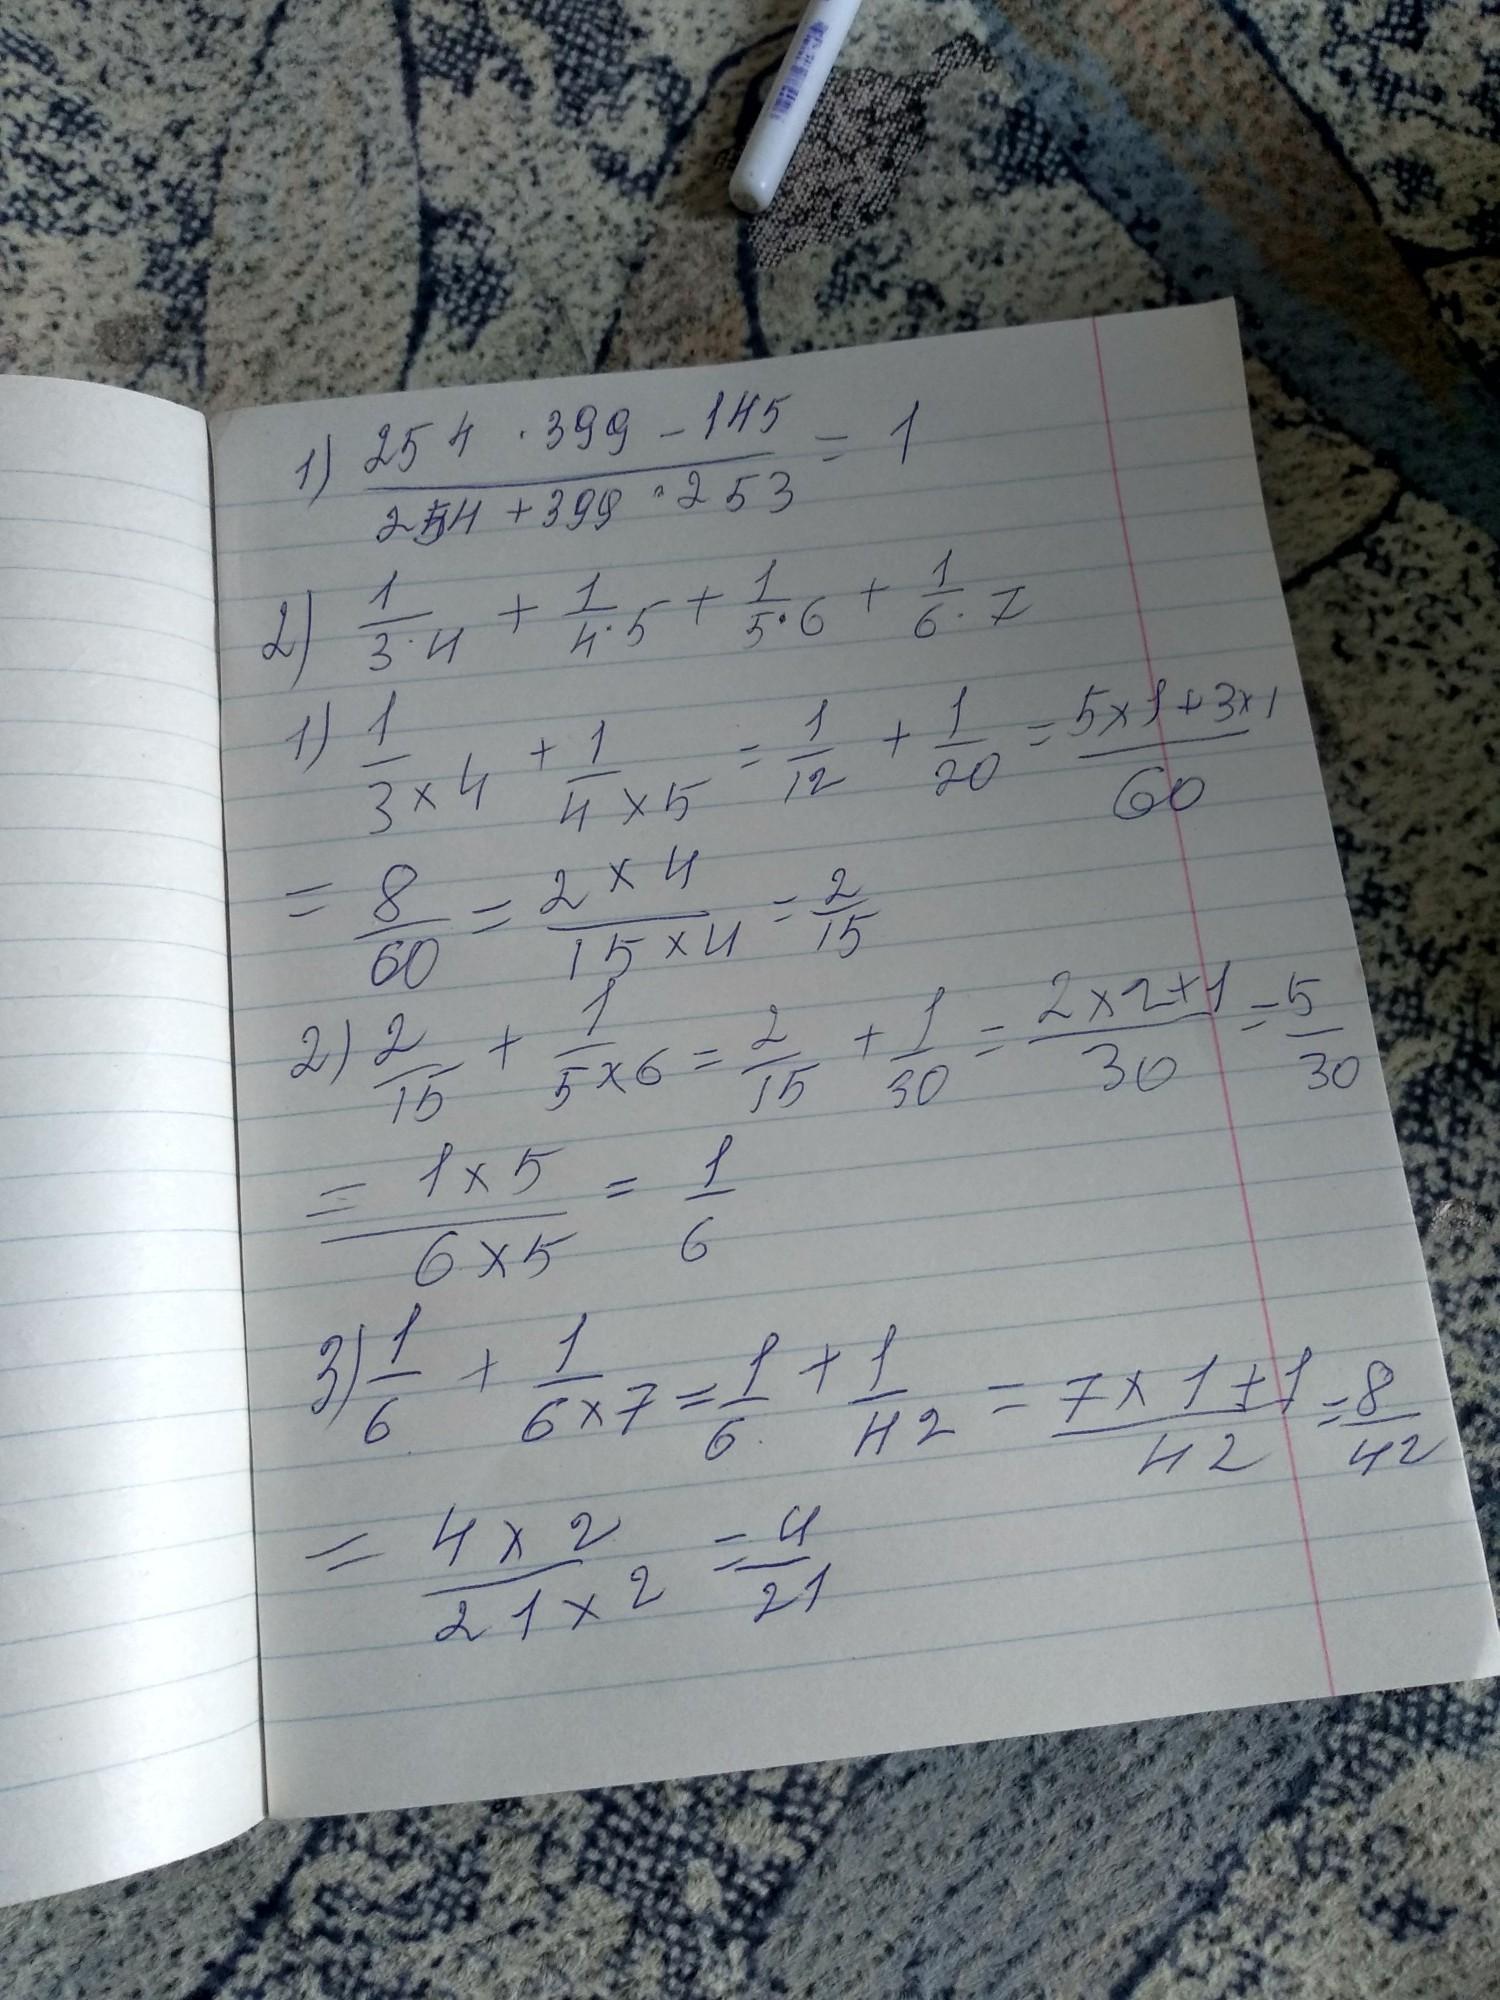 1) 254 · 399 - 145 / 254 + 399 · 253 = 1
2) 1/3·4 + 1/4·5 + 1/5·6 + 1/6·7
1) 1/3×4 + 1/4×5 = 1/12 + 1/20 = 5×1+3×1/60
= 8/60 = 2×4/15×4 = 2/15
2) 2/15 + 1/5×6 = 2/15 + 1/30 = 2×2+1/30 = 5/30
= 1×5/6×5 = 1/6
3) 1/6 + 1/6×7 = 1/6 + 1/42 = 7×1+1/42 = 8/42
= 4×2/21×2 = 4/21